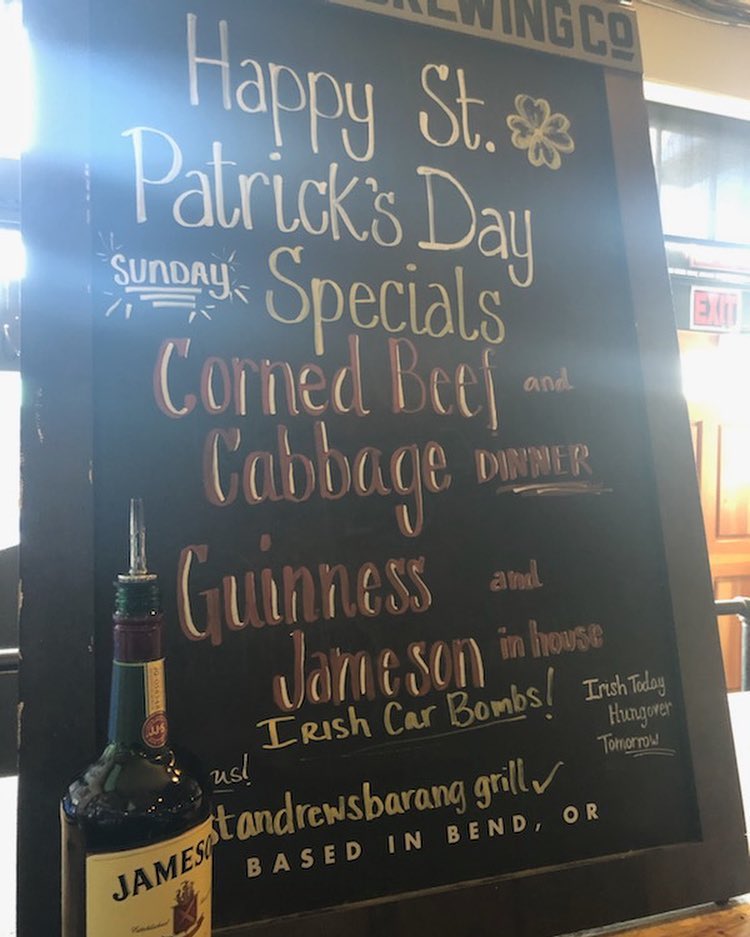 BREWING CO
Happy St.
Patrick's Day
SUNDAY Specials
Corned Beef and
Cabbage DINNER
Guinness and
Jameson in house
IRISH CAR BOMBS!
Irish Today
Hungover
Tomorrow
us!
standrewsbarang grill ✓
BASED IN BEND, OR
EXIT
JJ&S
JAMES